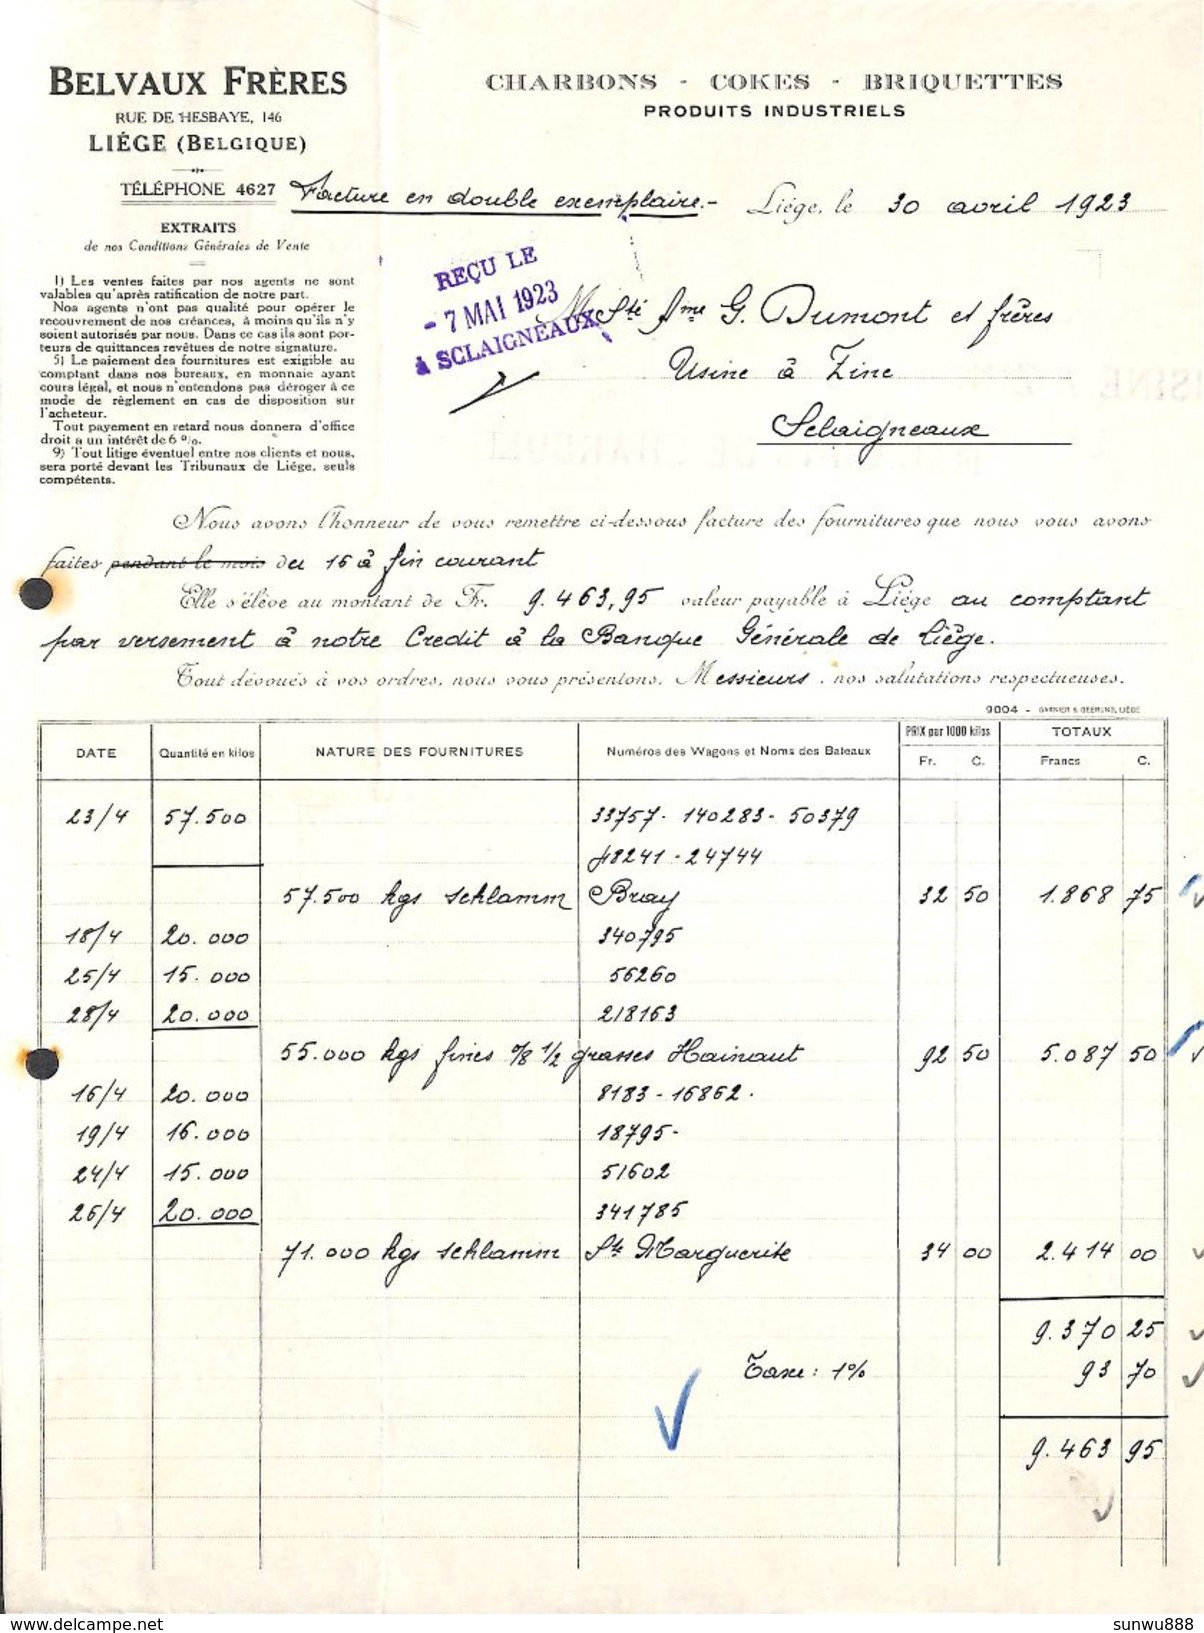 BELVAUX FRÈRES
RUE DE HESBAYE, 146
LIÉGE (BELGIQUE)
TÉLÉPHONE 4627
CHARBONS - COKES - BRIQUETTES
PRODUITS INDUSTRIELS
Facture en double exemplaire.-
Liége, le 30 avril 1923
EXTRAITS
de nos Conditions Générales de Vente
1) Les ventes faites par nos agents ne sont
valables qu'après ratification de notre part.
Nos agents n'ont pas qualité pour opérer le
recouvrement de nos créances, à moins qu'ils n'y
soient autorisés par nous. Dans ce cas ils sont por-
teurs de quittances revêtues de notre signature.
5) Le paiement des fournitures est exigible au
comptant dans nos bureaux, en monnaie ayant
cours légal, et nous n'entendons pas déroger à ce
mode de règlement en cas de disposition sur
l'acheteur.
Tout payement en retard nous donnera d'office
droit à un intérêt de 6 %.
9) Tout litige éventuel entre nos clients et nous,
sera porté devant les Tribunaux de Liége, seuls
compétents.
REÇU LE
- 7 MAI 1923
à SCLAIGNEAUX
M Sté Ame G. Dumont et frères
Usine à Zinc
Sclaigneaux
Nous avons l'honneur de vous remettre ci-dessous facture des fournitures que nous vous avons
faites pendant le mois du 16 à fin courant
Elle s'élève au montant de Fr. 9.463,95 valeur payable à Liége au comptant
par versement à notre Credit à la Banque Générale de Liège.
Tout dévoués à vos ordres, nous vous présentons, Messieurs, nos salutations respectueuses.
9004 - GARNIER & GEERING, LIÉGE
DATE Quantité en kilos NATURE DES FOURNITURES Numéros des Wagons et Noms des Bateaux PRIX par 1000 kilos TOTAUX
Fr. C. Francs C.
23/4 57.500 33757- 140283- 50379
48241 - 24744
57.500 kgs schlamm Bray 32 50 1.868 75
18/4 20.000 340795
25/4 15.000 56260
28/4 20.000 218163
55.000 kgs fines 0/8 1/2 grasses Hainaut 92 50 5.087 50
16/4 20.000 8183 - 16862.
19/4 16.000 18795-
24/4 15.000 51602
26/4 20.000 341785
71.000 kgs schlamm Ste Marguerite 34 00 2.414 00
9.370 25
Taxe: 1% 93 70
9.463 95
sunwu888